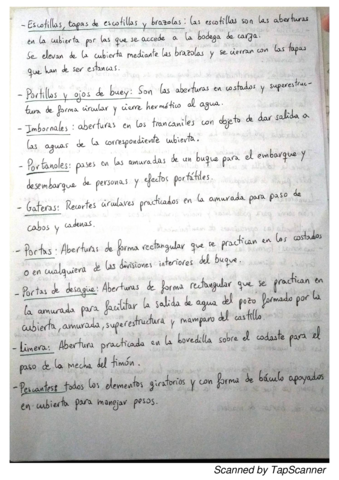 - Escotillas, tapas de escotillas y brazolas: las escotillas son las aberturas
en la cubierta por las que se accede a la bodega de carga.
Se elevan de la cubierta mediante las brazolas y se cierran con las tapas
que han de ser estancas.
- Portillos y ojos de buey: Son las aberturas en costados y superestruc-
tura de forma circular y cierre hermético al agua.
- Imbornales: aberturas en los trancaniles con objeto de dar salida a
las aguas de la correspondiente cubierta.
- Portalones: pases en las amuradas de un buque para el embarque y
desembarque de personas y efectos portátiles.
- Gateras: Recortes circulares practicados en la amurada para paso de
cabos y cadenas.
- Portas: Aberturas de forma rectangular que se practican en los costados
o en cualquiera de las divisiones interiores del buque.
- Portas de desagüe: Aberturas de forma rectangular que se practican en
la amurada para facilitar la salida de agua del pozo formado por la
cubierta, amurada, superestructura y mamparo del castillo
- Limera: Abertura practicada en la bovedilla sobre el codaste para el
paso de la mecha del timón.
- Pescantes: todos los elementos giratorios y con forma de báculo apoyados
en cubierta para manejar pesos.
Scanned by TapScanner